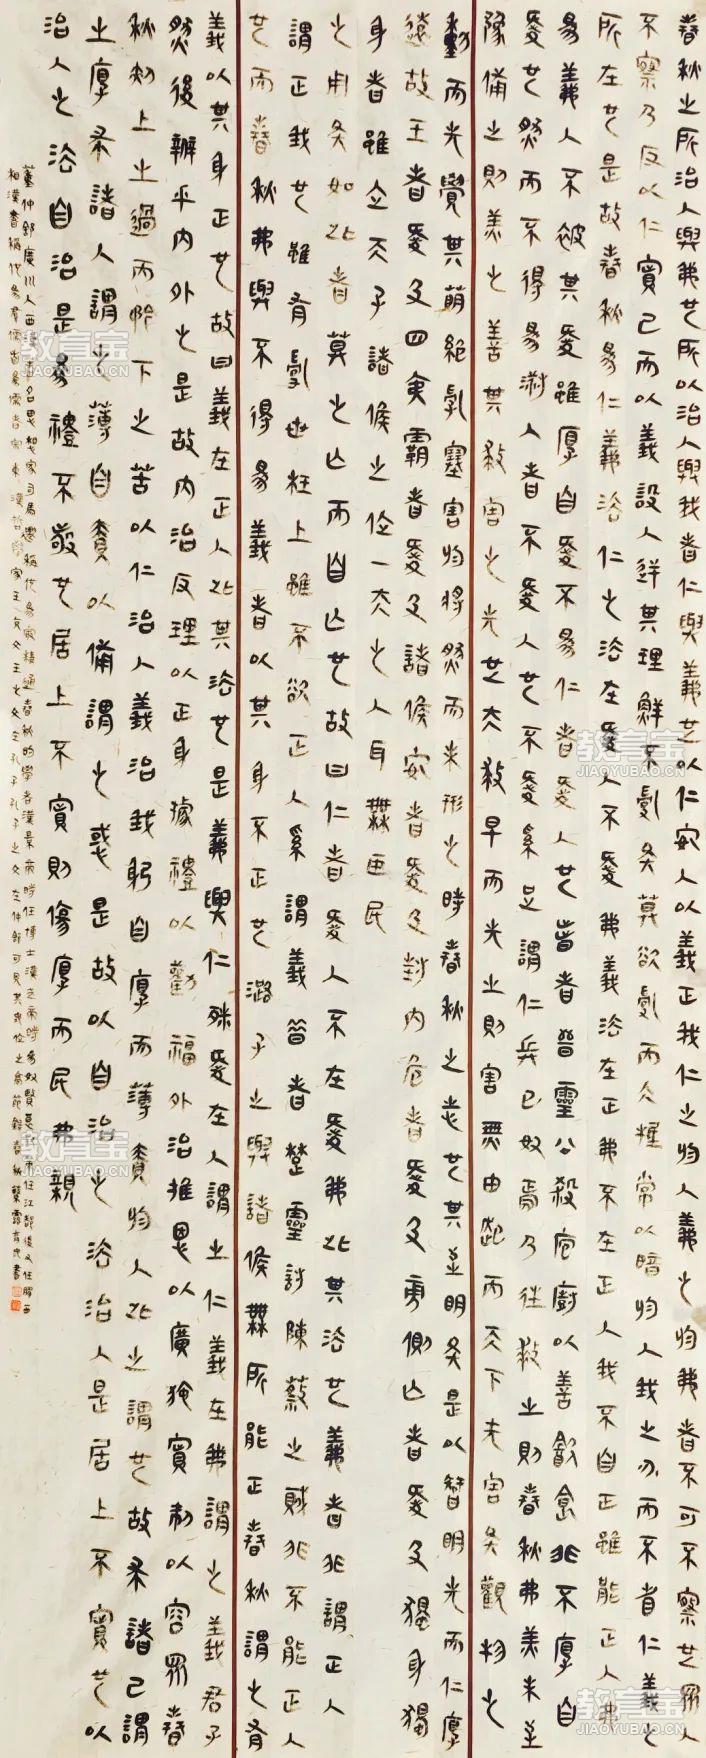 春秋之所治人與我也所以治人與我者仁與義也以仁安人以義正我仁之為人義之為我者不可不察也眾人
不察乃反以仁寬己而以義設人逆其理鮮不亂矣莫欲亂而大抵常以暗於人我之分而不省仁義之
所在也是故春秋為仁義法仁之法在愛人不愛我義法在正我不在正人我不自正雖能正人弗
為義人不被其愛雖厚自愛不為仁者愛人也昔者晉靈公殺庖廚以善飲食非不厚自
愛也然而不得為淑人者不愛人也不愛奚足謂仁兵已加焉乃往救之則春秋弗美未至
豫備之則美之善其救害之先也夫救早而先之則害無由起而天下無害矣觀物之
動而先覺其萌絕亂塞害於將然而未形之時春秋之志也其至明矣是以智明先而仁厚
遠故王者愛及四夷霸者愛及諸侯安者愛及封內危者愛及旁側亡者愛及獨身獨
身者雖立天子諸侯之位一夫之人耳無臣民
之用矣如此者莫之亡而自亡也故曰仁者愛人不在愛我此其法也義者非謂正人
謂正我也雖有亂世枉上雖不欲正人奚謂義昔者楚靈討陳蔡之賊非不能正人
也而春秋弗與不得為義者以其身不正也潞子之與諸侯無所能正春秋謂之有
義以其身正也故曰義在正人此其法也是義與仁殊愛在人謂之仁義在我謂之義君子
然後辨乎內外之是故內治反理以正身據禮以勸福外治推恩以廣施寬制以容眾春
秋刺上之過而矜下之苦以仁治人義治我躬自厚而薄責於人此之謂也故求諸己謂
之厚求諸人謂之薄自責以備謂之惑是故以自治之法治人是居上不寬也以
治人之法自治是為禮不敬也居上不寬則傷厚而民弗親
董仲舒廣川人西漢著名思想家司馬遷稱他為精通春秋的學者漢景帝時任博士漢武帝時任江都後又任膠西
相漢書稱他為群儒首為儒者宗東漢哲學家王充文王之文在孔子孔子之文在仲舒可見其地位之高節錄春秋繁露書